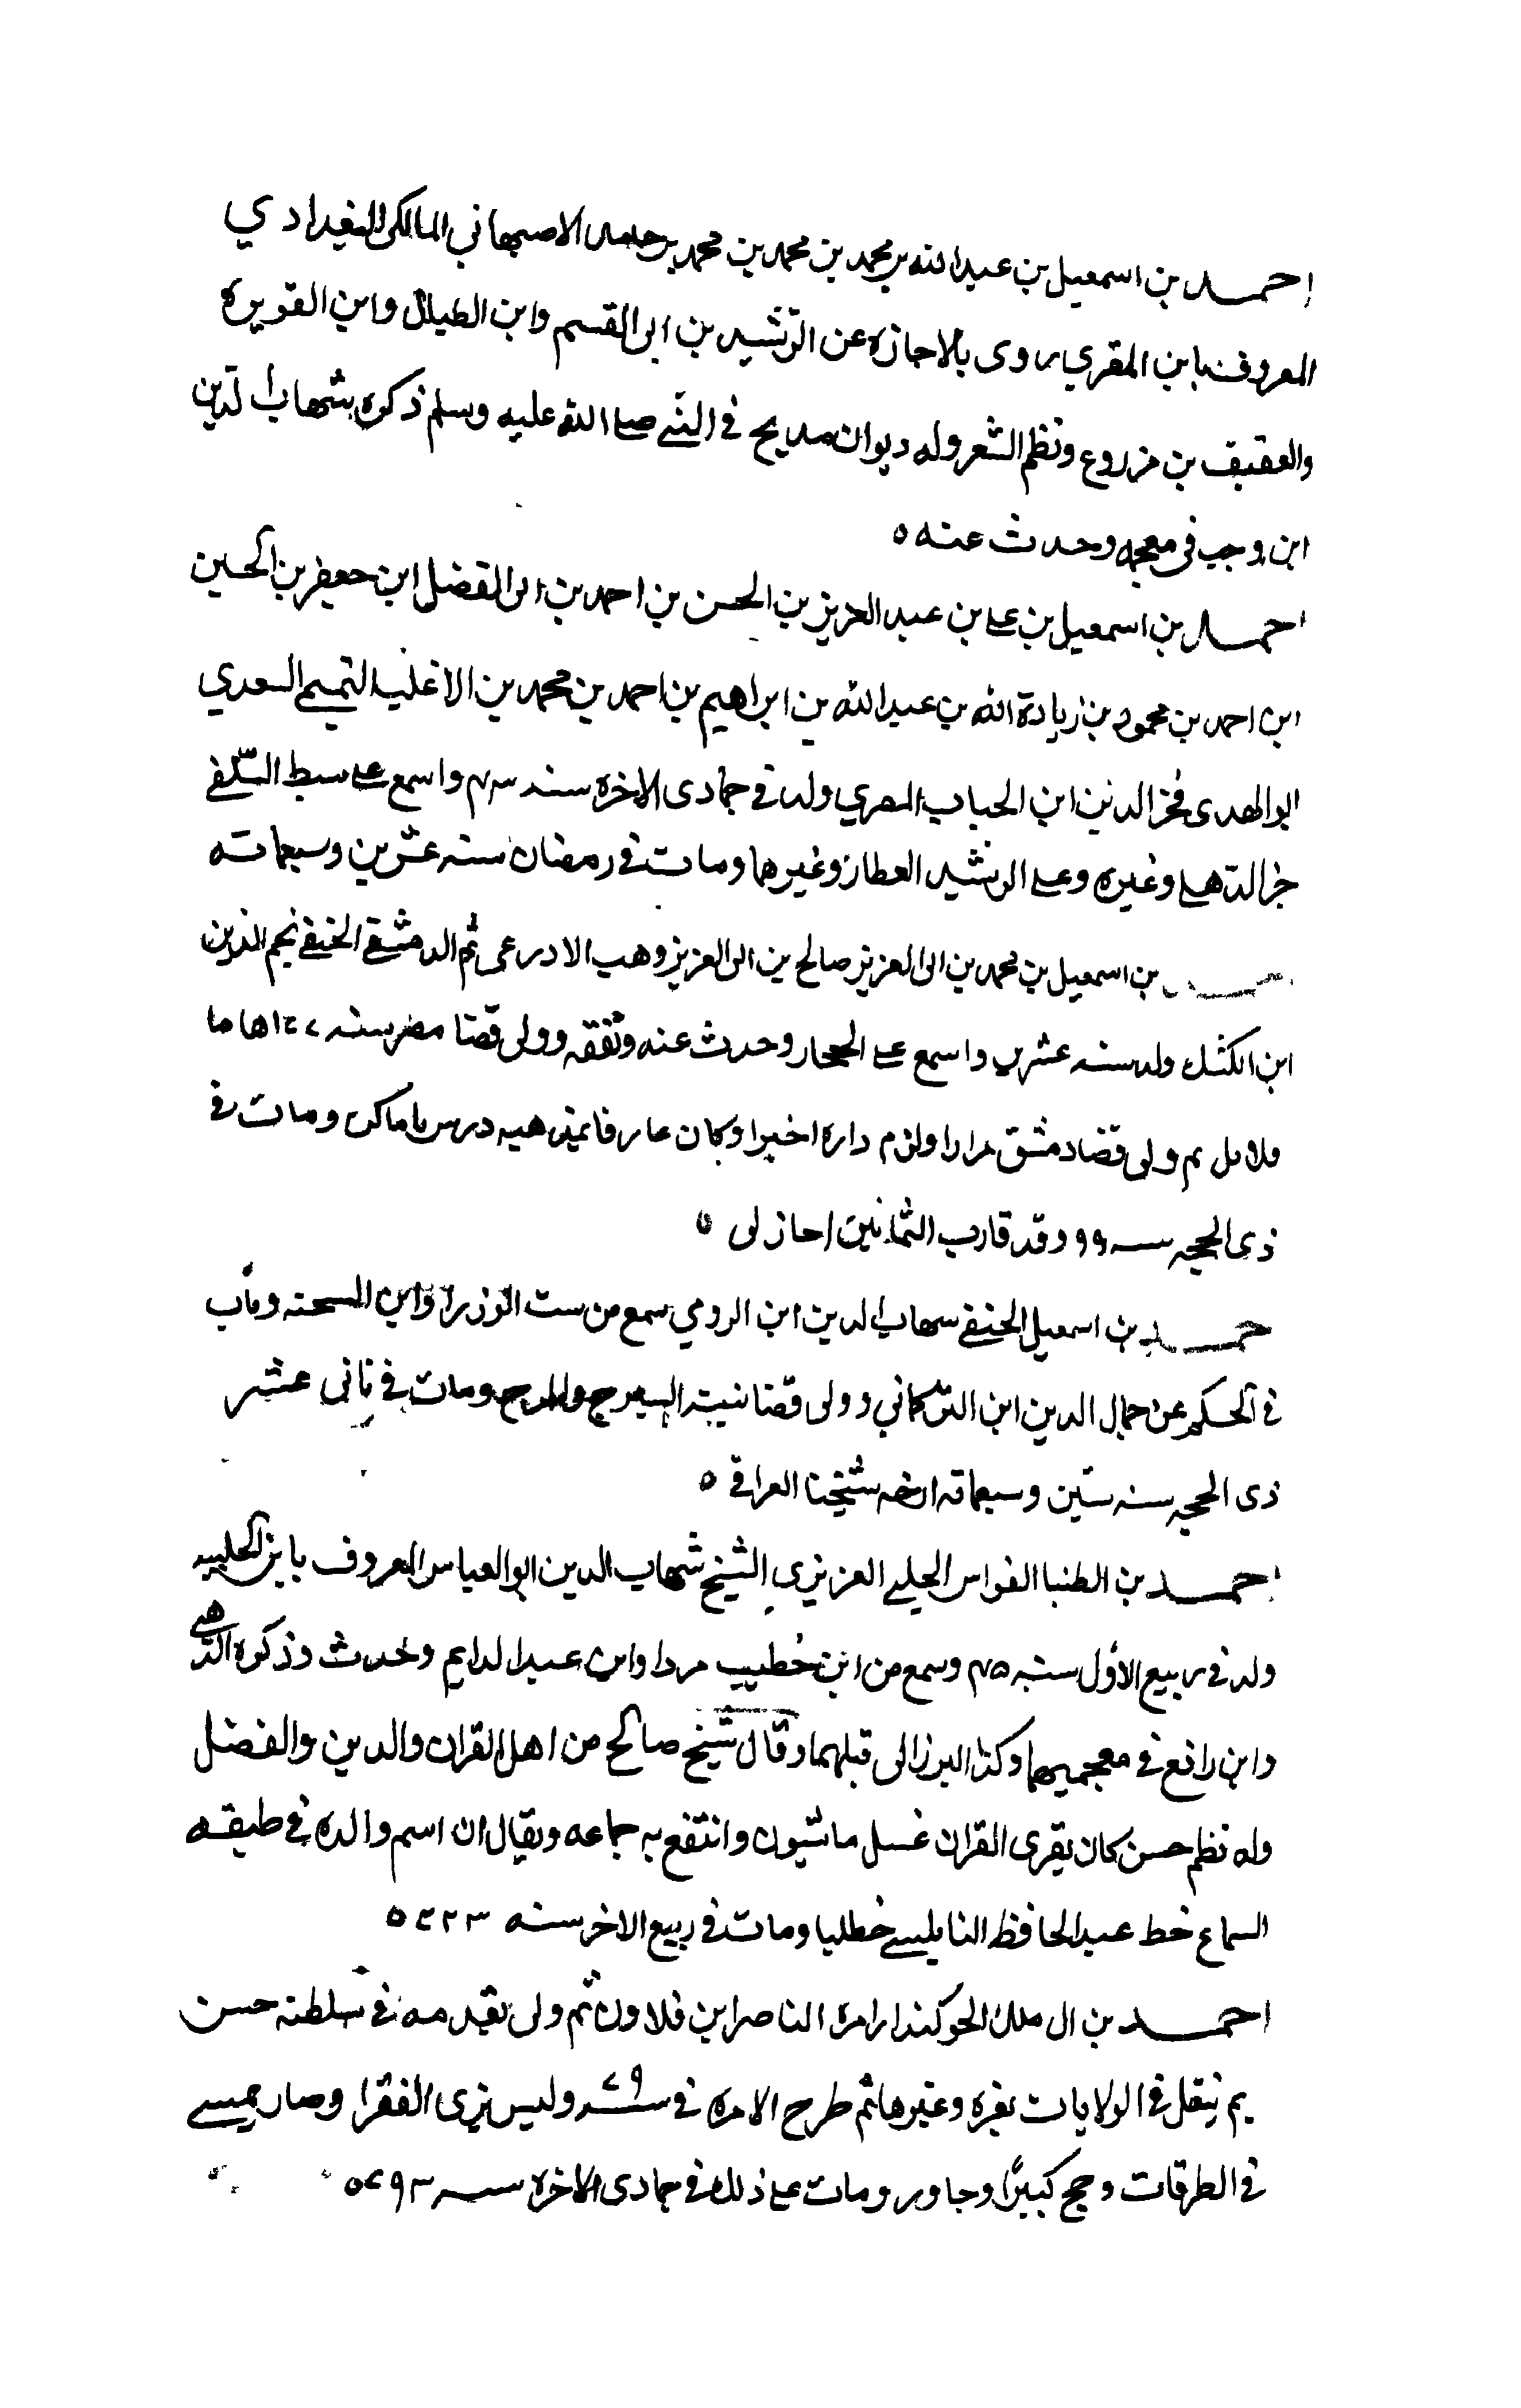 احمد بن اسمعيل بن عبد الله بن محمد بن محمد بن محمد بن حامد الاصبهاني المالكي البغدادي
المعروف بابن المقري روى بالاجازه عن الرشيد بن ابى القسم وابن الطبال وابن القويره
والعفيف بن مزروع ونظم الشعر وله ديوان مديح في النبي صلى الله عليه وسلم ذكره شهاب الدين
ابن رجب في معجمه وحدث عنه ٥
احمد بن اسمعيل بن على بن عبد العزيز بن الحسن بن احمد بن ابى الفضل ابن جعفر بن الحسين
ابن احمد بن محمود بن زيادة الله بن عبد الله بن ابراهيم بن احمد بن محمد بن الاغلب التميمي السعدي
ابو الهدى فخر الدين ابن الحباب المصري ولد في جمادى الاخره سنه ٤٣ واسمع على سبط السلفي
جزا الذهلي وغيره وعلى الرشيد العطار وغيرها ومات في رمضان سنه عشرين وسبعمائه
بن اسمعيل بن محمد بن ابى العزيز صالح بن ابى العزيز وهب الادرعى ثم الدمشقي الحنفي نجم الدين
ابن الكشك ولد سنه عشرين واسمع على الحجار وحدث عنه وتفقه وولى قضا مصر سنه ٧٧
قلايل ثم ولى قضا دمشق مرارا ولزم داره اخيرا وكان عارفا بمذهبه درس باماكن ومات في
ذي الحجه سنه ٩٩ وقد قارب الثمانين اجاز لى ٥
حمد بن اسمعيل الحنفي شهاب الدين ابن الرومي سمع من ست الوزرا وابن الشحنه وناب
في الحكم عن جمال الدين ابن التركماني وولى قضا ومات في ثاني عشر
ذي الحجه سنه ستين وسبعمائه ارخه شيخنا العراقي ٥
احمد بن الطنبا القواس الحلبي العزيزي الشيخ شهاب الدين ابو العباس المعروف بابن الحلبيه
ولد في ربيع الأول سنه ٤٥ وسمع من ابن خطيب مردا وابن عبد الدايم وحدث وذكره الذهبي
وابن رافع في معجميهما وكذا البرزالي قبلهما وقال شيخ صالح من اهل القران والدين والفضل
وله نظم حسن كان يقرى القران وانتفع به جماعه ويقال ان اسم والده في طبقه
السماع بخط عبد الحافظ النابلسي خطلبا ومات في ربيع الاخر سنه ٧٢٣ ٥
احمد بن ال ملك الجوكندار امره الناصر ابن قلاون ثم ولى تقدمه في سلطنه حسن
ثم تنقل في الولايات بغزه وغيرها ثم طرح الامره في سنه ٧٩ ولبس بزى الفقرا وصار يمشي
في الطرقات وحج كثيرًا وجاور ومات على ذلك في جمادى الاخره سنه ٧٩٣ ٥